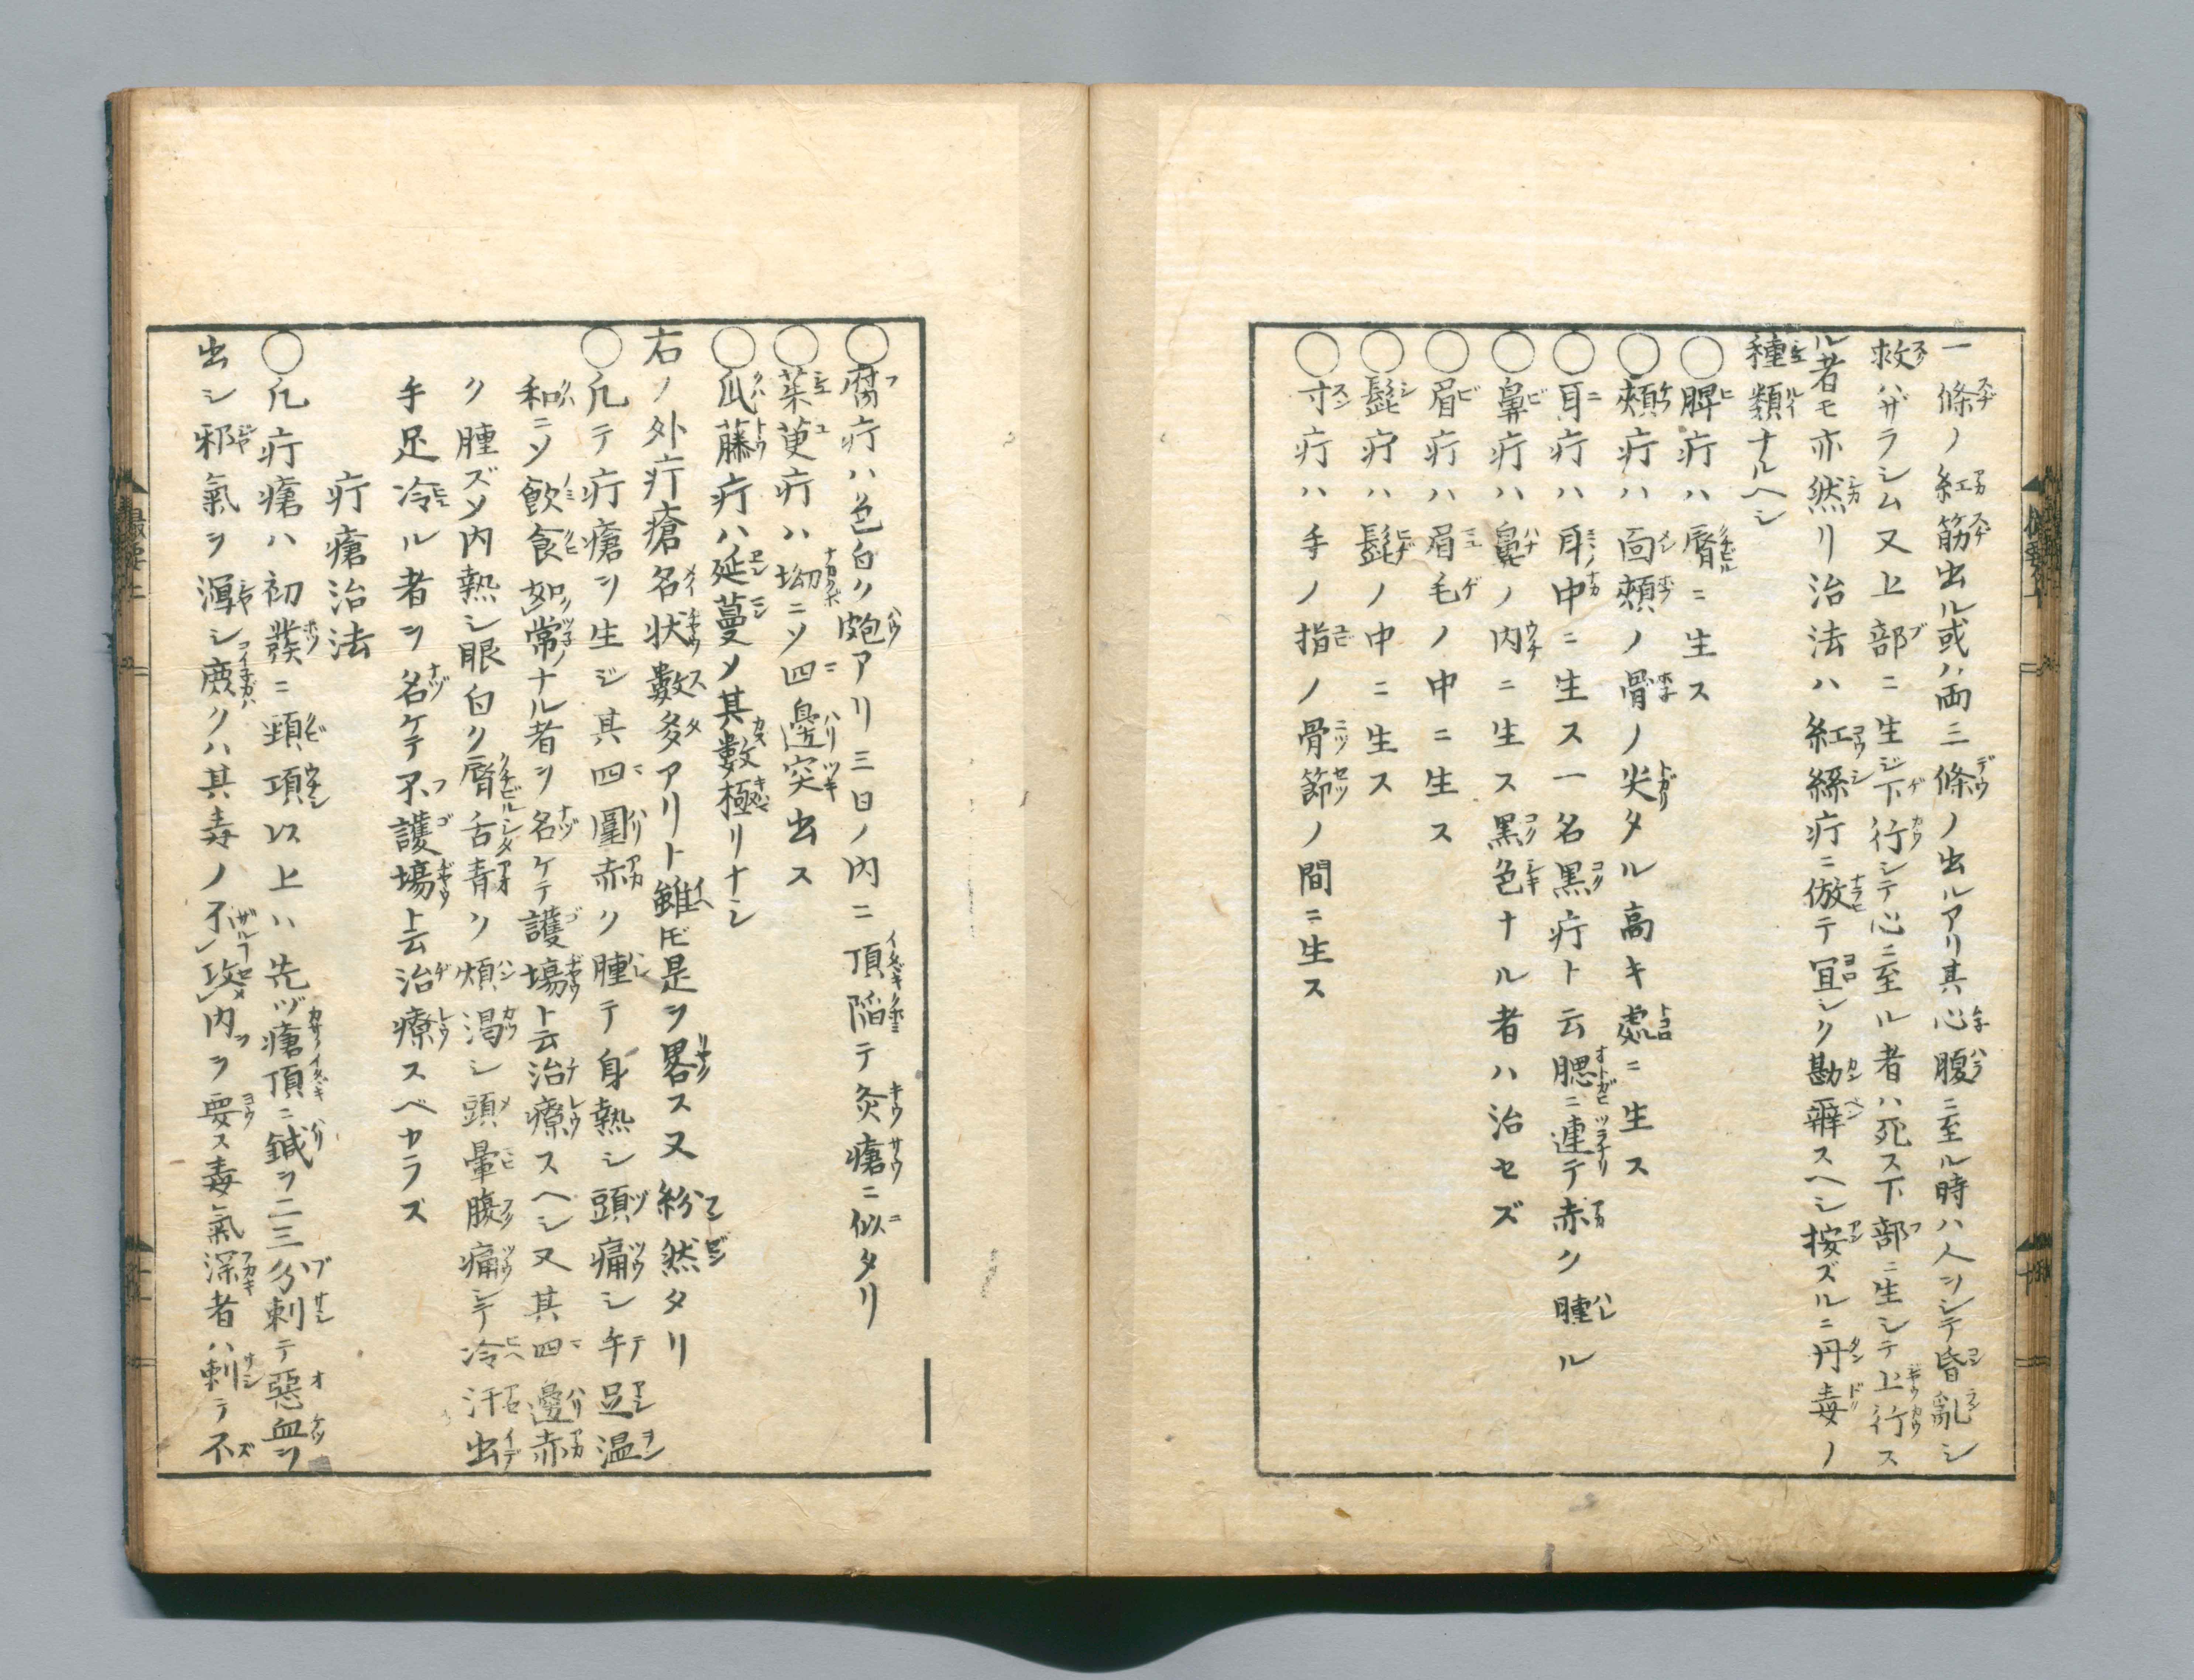 一條ノ紅筋出ル或ハ両三條ノ出ルアリ其心腹ニ至ル時ハ人ヲシテ昏亂シ
救ハザラシム又上部ニ生ジ下行シテ心ニ至ル者ハ死ス下部ニ生シテ上行ス
ル者モ亦然リ治法ハ紅絲疔ニ倣テ宜シク勘辧スヘシ按ズルニ丹毒ノ
種類ナルヘシ
○脾疔ハ脣ニ生ス
○頰疔ハ面頰ノ骨ノ尖タル高キ處ニ生ス
○耳疔ハ耳中ニ生ス一名黒疔ト云腮ニ連テ赤ク腫ル
○鼻疔ハ鼻ノ内ニ生ス黒色ナル者ハ治セズ
○眉疔ハ眉毛ノ中ニ生ス
○髭疔ハ髭ノ中ニ生ス
○寸疔ハ手ノ指ノ骨節ノ間ニ生ス
○腐疔ハ色白ク皰アリ三日ノ内ニ頂陥テ灸瘡ニ似タリ
○茱萸疔ハ坳ニソ四邊突出ス
○瓜藤疔ハ延蔓メ其數極リナシ
右ノ外疔瘡名状數多アリト雖モ是ヲ畧ス又紛然タリ
○凢テ疔瘡ヲ生ジ其四圍赤ク腫テ身熱シ頭痛シ手足温
和ニソ飲食如常ナル者ヲ名ケテ護場ト云治療スヘシ又其四邊赤
ク腫ズソ内熱シ眼白ク脣舌青ク煩渇シ頭暈腹痛シテ冷汗出
手足冷ル者ヲ名ケテ不護場ト云治療スベカラズ
疔瘡治法
○凢疔瘡ハ初發ニ頸項以上ハ先ヅ瘡頂ニ鍼ヲ二三分刺テ惡血ヲ
出シ邪氣ヲ瀉シ庶クハ其毒ノ不攻内ヲ要ス毒氣深者ハ刺テ不